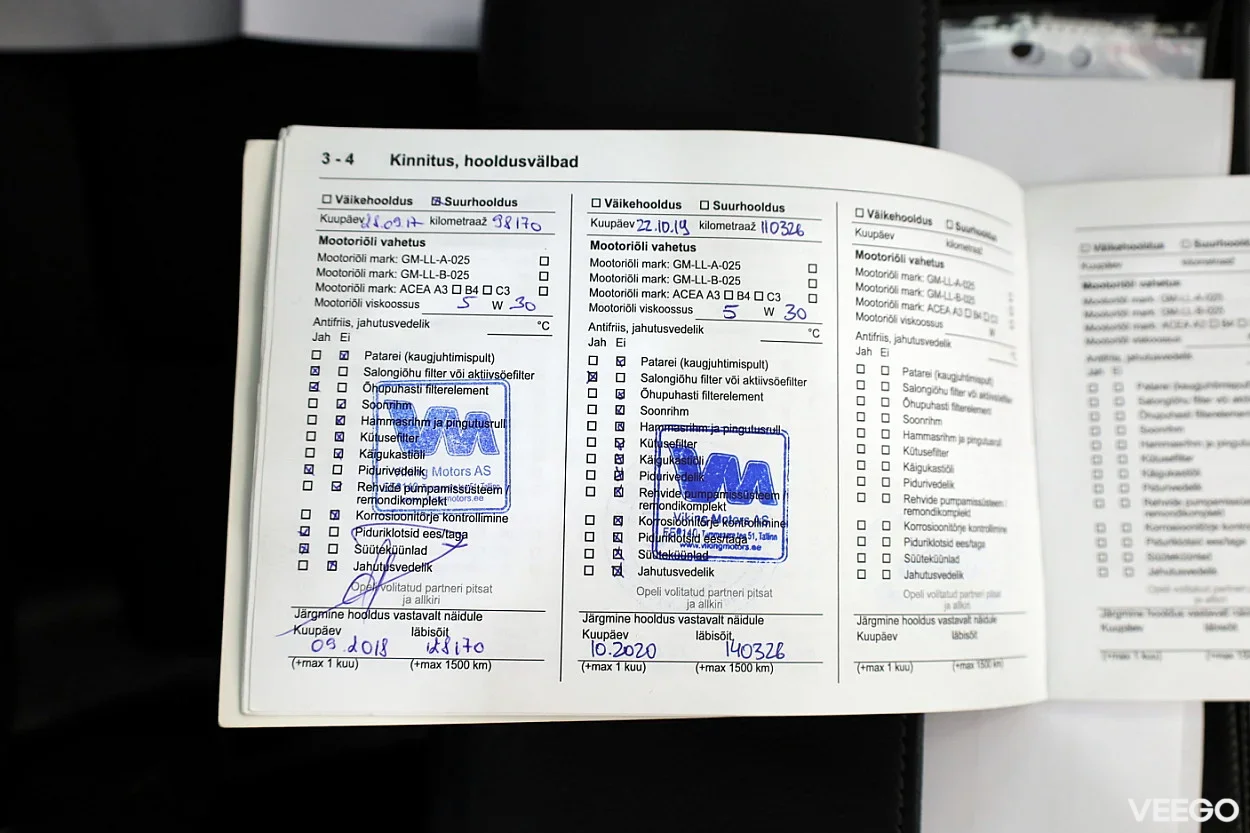 3 - 4 Kinnitus, hooldusvälbad
☐ Väikehooldus ☒ Suurhooldus
Kuupäev 28.09.17 kilometraaž 98170
Mootoriõli vahetus
Mootoriõli mark: GM-LL-A-025 ☐
Mootoriõli mark: GM-LL-B-025 ☐
Mootoriõli mark: ACEA A3 ☐ B4 ☐ C3 ☐
Mootoriõli viskoossus 5 W 30
Antifriis, jahutusvedelik °C
Jah Ei
☐ ☒ Patarei (kaugjuhtimispult)
☒ ☐ Salongiõhu filter või aktiivsöefilter
☒ ☐ Õhupuhasti filterelement
☐ ☒ Soonrihm
☐ ☒ Hammasrihm ja pingutusrull
☐ ☒ Kütusefilter
☐ ☒ Käigukastiõli
☒ ☐ Pidurivedelik
☐ ☒ Rehvide pumpamissüsteem /
remondikomplekt
☐ ☒ Korrosioonitõrje kontrollimine
☒ ☐ Piduriklotsid ees/taga
☒ ☐ Süüteküünlad
☐ ☒ Jahutusvedelik
Viking Motors AS
Opeli volitatud partneri pitsat
ja allkiri
Järgmine hooldus vastavalt näidule
Kuupäev läbisõit
09.2018 128170
(+max 1 kuu) (+max 1500 km)
☐ Väikehooldus ☐ Suurhooldus
Kuupäev 22.10.19 kilometraaž 110326
Mootoriõli vahetus
Mootoriõli mark: GM-LL-A-025 ☐
Mootoriõli mark: GM-LL-B-025 ☐
Mootoriõli mark: ACEA A3 ☐ B4 ☐ C3 ☐
Mootoriõli viskoossus 5 W 30
Antifriis, jahutusvedelik °C
Jah Ei
☐ ☒ Patarei (kaugjuhtimispult)
☒ ☐ Salongiõhu filter või aktiivsöefilter
☐ ☒ Õhupuhasti filterelement
☐ ☒ Soonrihm
☐ ☒ Hammasrihm ja pingutusrull
☐ ☒ Kütusefilter
☐ ☒ Käigukastiõli
☐ ☒ Pidurivedelik
☐ ☒ Rehvide pumpamissüsteem /
remondikomplekt
☐ ☒ Korrosioonitõrje kontrollimine
☐ ☒ Piduriklotsid ees/taga
☐ ☒ Süüteküünlad
☐ ☒ Jahutusvedelik
Viking Motors AS
Tammsaare tee 51, Tallinn
www.vikingmotors.ee
Opeli volitatud partneri pitsat
ja allkiri
Järgmine hooldus vastavalt näidule
Kuupäev läbisõit
10.2020 140326
(+max 1 kuu) (+max 1500 km)
☐ Väikehooldus ☐ Suurhooldus
Kuupäev kilometraaž
Mootoriõli vahetus
Mootoriõli mark: GM-LL-A-025
Mootoriõli mark: GM-LL-B-025
Mootoriõli mark: ACEA A3 ☐ B4 ☐
Mootoriõli viskoossus
Antifriis, jahutusvedelik
Jah Ei
☐ ☐ Patarei (kaugjuhtimispult)
☐ ☐ Salongiõhu filter või aktiivsöefilter
☐ ☐ Õhupuhasti filterelement
☐ ☐ Soonrihm
☐ ☐ Hammasrihm ja pingutusrull
☐ ☐ Kütusefilter
☐ ☐ Käigukastiõli
☐ ☐ Pidurivedelik
☐ ☐ Rehvide pumpamissüsteem /
remondikomplekt
☐ ☐ Korrosioonitõrje kontrollimine
☐ ☐ Piduriklotsid ees/taga
☐ ☐ Süüteküünlad
☐ ☐ Jahutusvedelik
Opeli volitatud partneri pitsat
ja allkiri
Järgmine hooldus vastavalt näidule
Kuupäev läbisõit
(+max 1 kuu) (+max 1500 km)
VEEGO